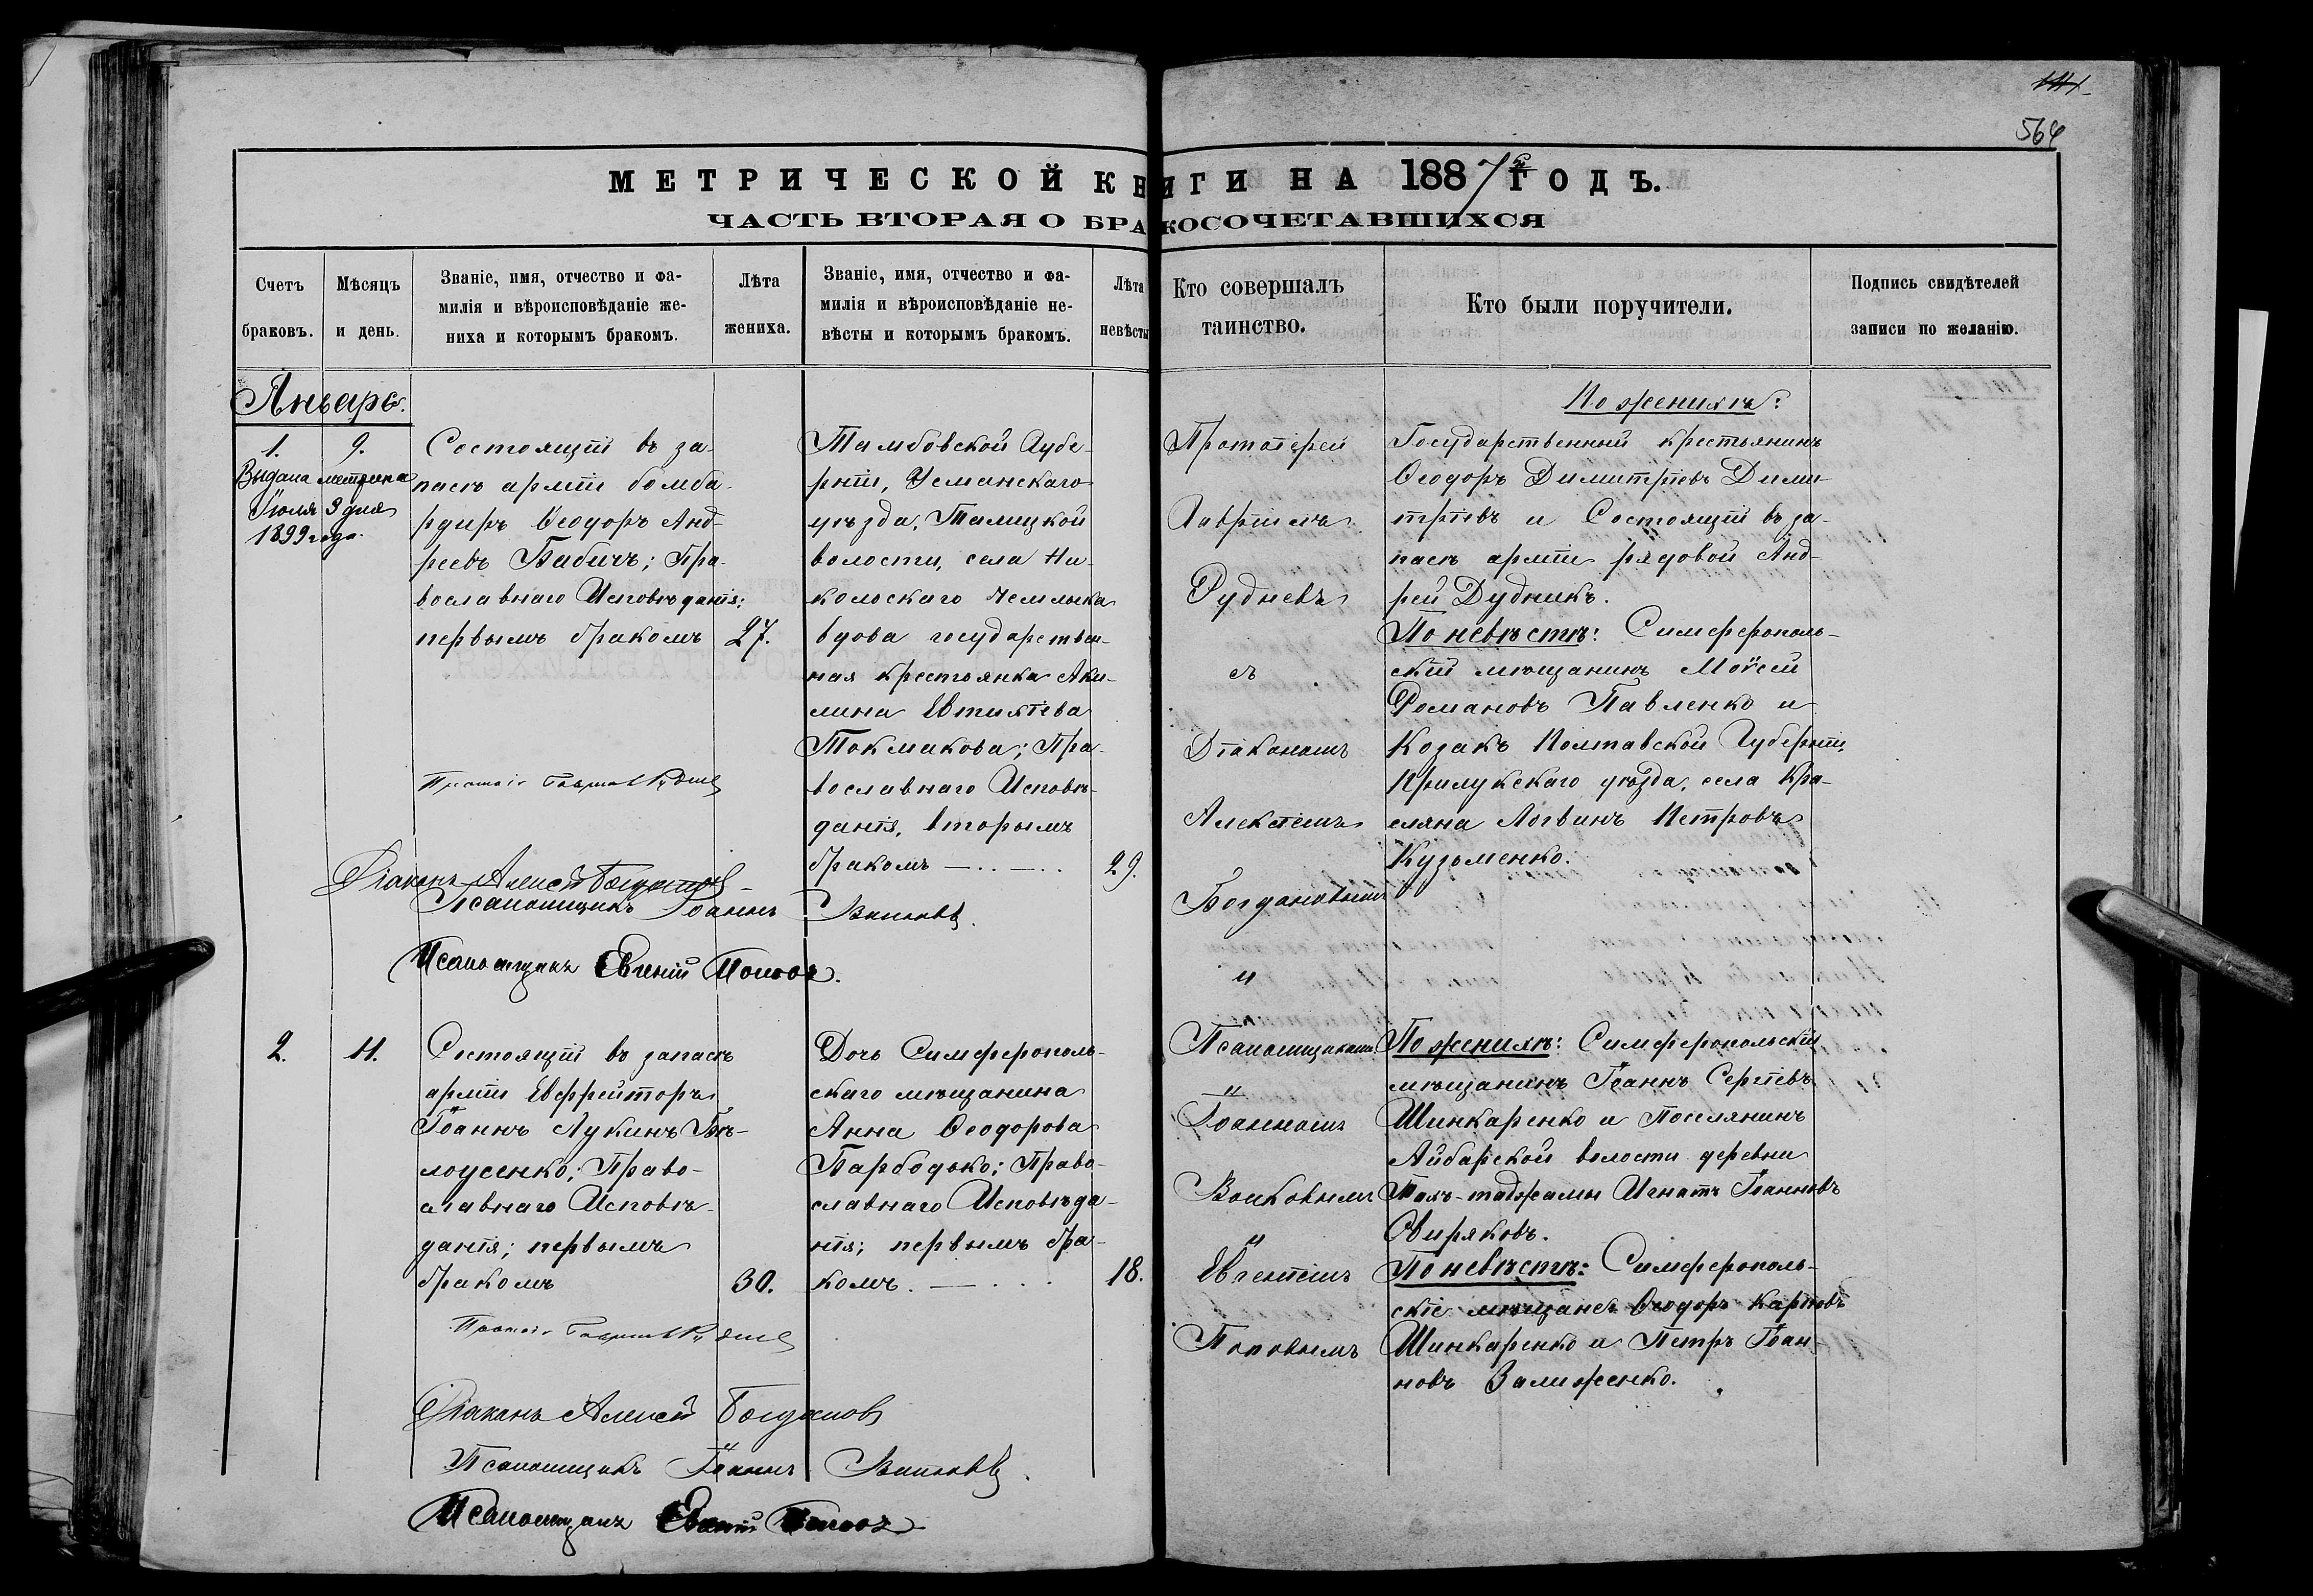 564
МЕТРИЧЕСКОЙ КНИГИ НА 1887й ГОДЪ.
ЧАСТЬ ВТОРАЯ О БРАКОСОЧЕТАВШИХСЯ
Счетъ браковъ.
Мѣсяцъ и день.
Званіе, имя, отчество и фа-
милія и вѣроисповѣданіе же-
ниха и которымъ бракомъ.
Лѣта жениха.
Званіе, имя, отчество и фа-
милія и вѣроисповѣданіе не-
вѣсты и которымъ бракомъ.
Лѣта невѣсты
Кто совершалъ
таинство.
Кто были поручители.
Подпись свидѣтелей
записи по желанію.
Январь.
1.
9.
Выдана метрика
Іюля 3 дня
1899 года.
Состоящій въ за-
пасѣ арміи бомба-
рдиръ Ѳеодоръ Анд-
реевъ Бабичъ; Пра-
вославнаго Исповѣданія;
первымъ бракомъ
27.
Тамбовской Губе-
рніи, Усманскаго
уѣзда, Талицкой
волости, села Ни-
кольскаго Чемлыка
вдова государствен-
ная крестьянка Аки-
лина Евтихіева
Токмакова; Пра-
вославнаго Исповѣ-
данія, вторымъ
бракомъ
29.
Діаконъ Алексѣй Богдановъ
Псаломщикъ Іоаннъ Волковъ.
Псаломщикъ Евгеній Поповъ.
Протоіерей
Гавріилъ
Рудневъ
съ
Діакономъ
Алексѣемъ
Богдановымъ
и
Псаломщиками
Іоанномъ
Волковымъ
и
Евгеніемъ
Поповымъ
По женихѣ:
Государственный крестьянинъ
Ѳеодоръ Димитріевъ Дими-
тріевъ и Состоящій въ за-
пасѣ арміи рядовой Анд-
рей Дудникъ.
По невѣстѣ: Симферополь-
скій мѣщанинъ Моѵсей
Романовъ Павленко и
Козакъ Полтавской Губерніи,
Прилукскаго уѣзда, села Кра-
сляна Логвинъ Петровъ
Кузьменко.
2.
11.
Состоящій въ запасѣ
арміи Евфрейторъ
Іоаннъ Лукинъ Бѣ-
лоусенко; Право-
славнаго Исповѣ-
данія; первымъ
бракомъ
30.
Дочь Симферополь-
скаго мѣщанина
Анна Ѳеодорова
Парбодько; Право-
славнаго Исповѣда-
нія; первымъ бра-
комъ.
18.
По женихѣ: Симферопольскій
мѣщанинъ Іоаннъ Сергіевъ
Шинкаренко и Поселянинъ
Айбарской волости деревни
Игнатъ Іоанновъ
Свиряковъ.
По невѣстѣ: Симферополь-
скіе мѣщане Ѳеодоръ Карповъ
Шинкаренко и Петръ Іоан-
новъ Залиженко.
Діаконъ Алексѣй Богдановъ
Псаломщикъ Іоаннъ Волковъ.
Псаломщикъ Евгеній Поповъ